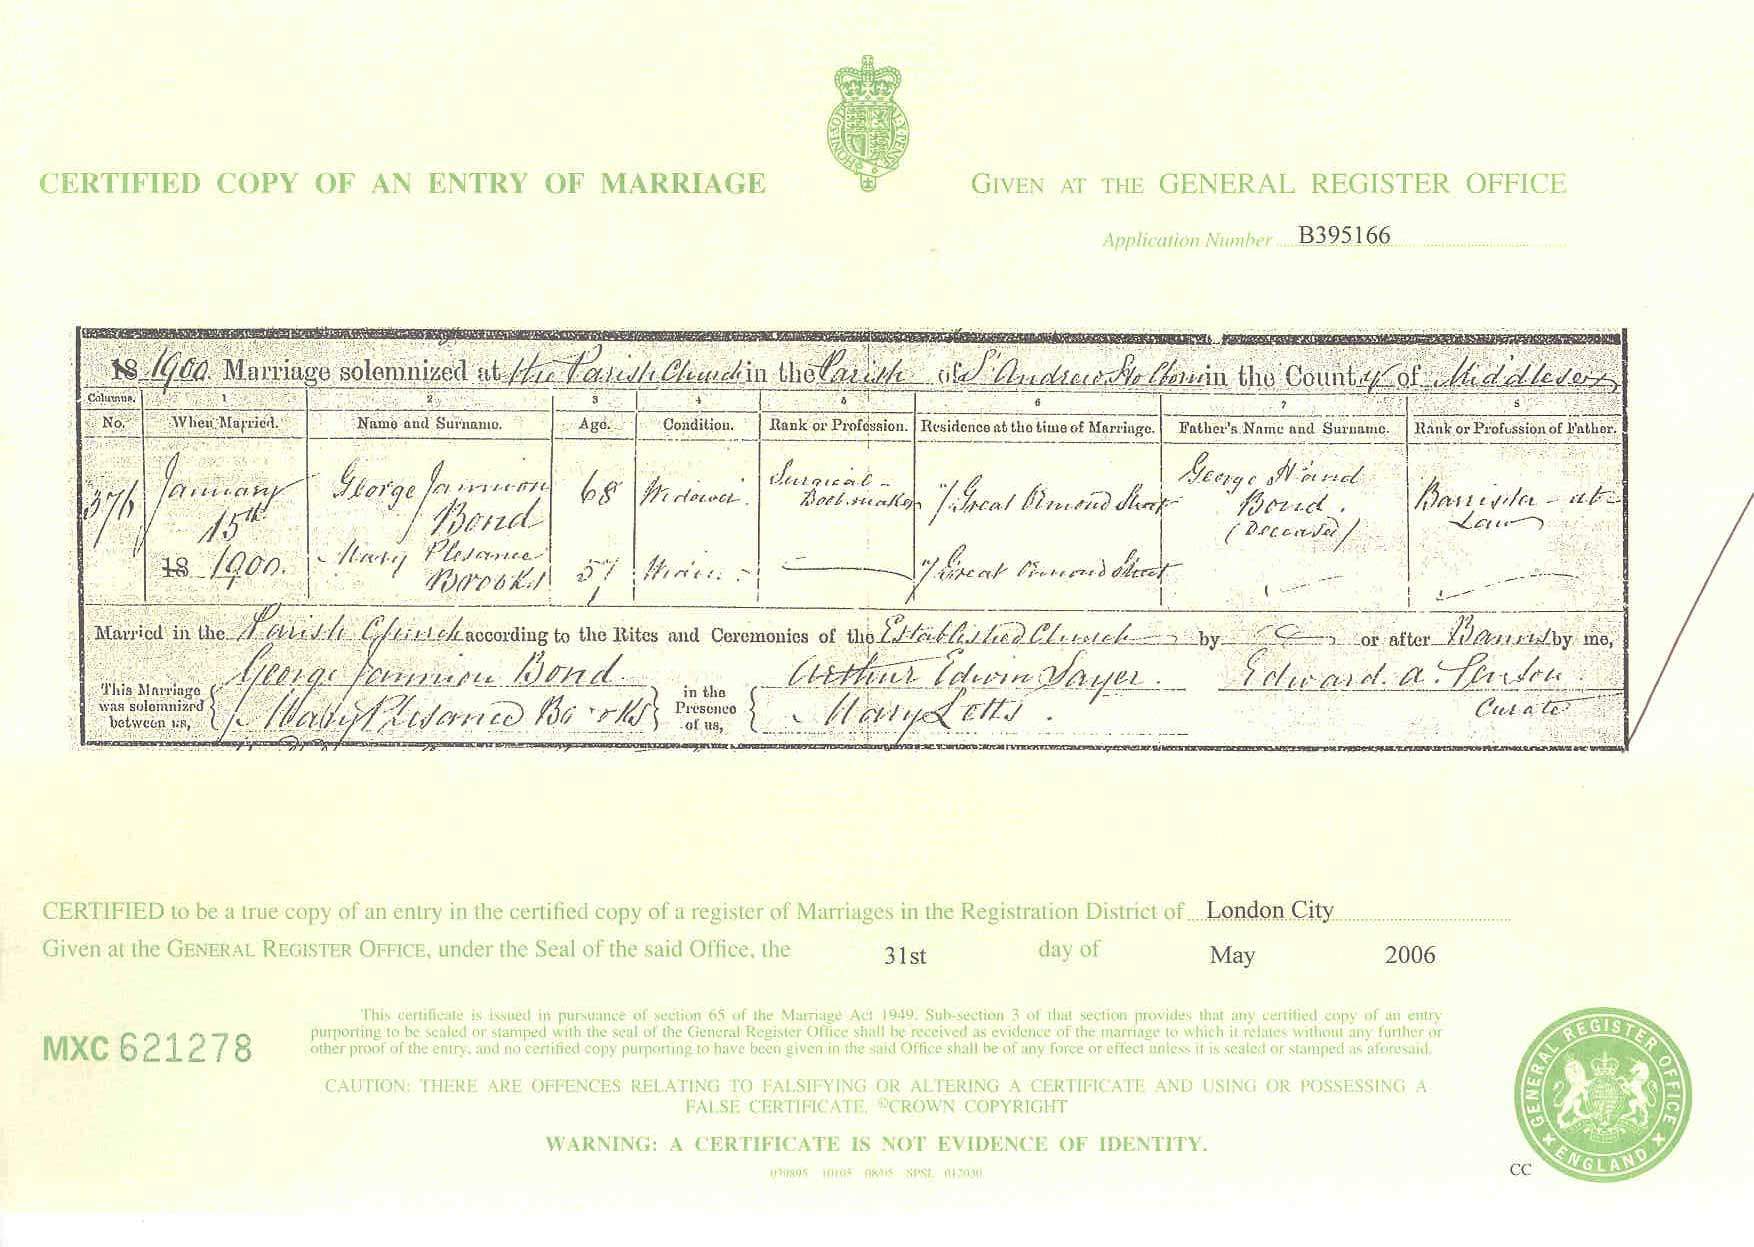 CERTIFIED COPY OF AN ENTRY OF MARRIAGE
GIVEN AT THE GENERAL REGISTER OFFICE
Application Number B395166
18 1900. Marriage solemnized at the Parish Church in the Parish of St Andrew Holborn in the County of Middlesex
Columns. 1 2 3 4 5 6 7 8
No. When Married. Name and Surname. Age. Condition. Rank or Profession. Residence at the time of Marriage. Father's Name and Surname. Rank or Profession of Father.
376 January 15th 18 1900.
George Jannion Bond 68 Widower Surgical - Boot-maker 7 Great Ormond Street George Hand Bond. (Deceased) Barrister-at-Law
Mary Plesance Brooks 57 Great Ormond Street
Married in the Parish Church according to the Rites and Ceremonies of the Established Church by or after Banns by me,
This Marriage was solemnized between us,
George Jannion Bond.
Mary Plesance Brooks
in the Presence of us,
Arthur Edwin Sayer.
Mary Letts.
Edward A.
Curate
CERTIFIED to be a true copy of an entry in the certified copy of a register of Marriages in the Registration District of London City
Given at the GENERAL REGISTER OFFICE, under the Seal of the said Office, the 31st day of May 2006
MXC 621278
This certificate is issued in pursuance of section 65 of the Marriage Act 1949. Sub-section 3 of that section provides that any certified copy of an entry
purporting to be sealed or stamped with the seal of the General Register Office shall be received as evidence of the marriage to which it relates without any further or
other proof of the entry, and no certified copy purporting to have been given in the said Office shall be of any force or effect unless it is sealed or stamped as aforesaid.
CAUTION: THERE ARE OFFENCES RELATING TO FALSIFYING OR ALTERING A CERTIFICATE AND USING OR POSSESSING A
FALSE CERTIFICATE. ©CROWN COPYRIGHT
WARNING: A CERTIFICATE IS NOT EVIDENCE OF IDENTITY.
SPSL
CC
GENERAL REGISTER OFFICE
ENGLAND